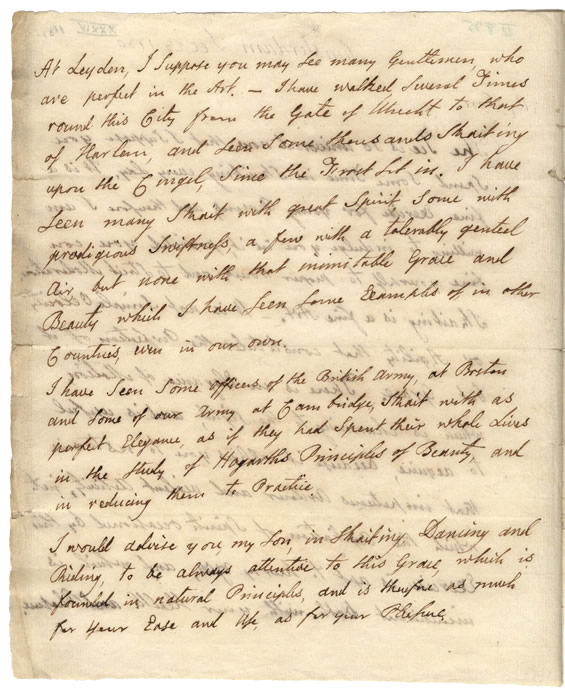 At Leyden, I Suppose you may See many Gentlemen, who
are perfect in the Art. — I have walked Several Times
round this City from the Gate of Utrecht to that
of Harlem, and Seen Some thousands Skaiting
upon the Cingel, Since the Frost Set in. I have
Seen many Skait with great Spirit, Some with
prodigious Swiftness, a few with a tolerably genteel
Air, but none with that inimitable Grace and
Beauty which I have Seen Some Examples of in other
Countries, even in our own.
I have Seen Some officers of the British Army, at Boston
and Some of our Army at Cambridge, Skait with as
perfect Elegance, as if they had Spent their whole Lives
in the Study of Hogarths Principles of Beauty, and
in reducing them to Practice
I would advise you, my Son, in Skaiting, Dancing and
Riding, to be always attentive to this Grace, which is
founded in natural Principles, and is therefore as much
for your Ease and Use, as for your Pleasure.